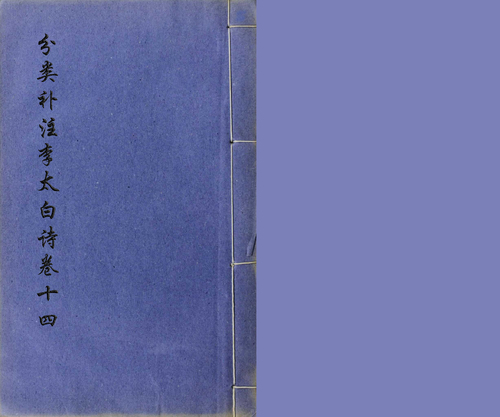 分类补注李太白诗卷十四